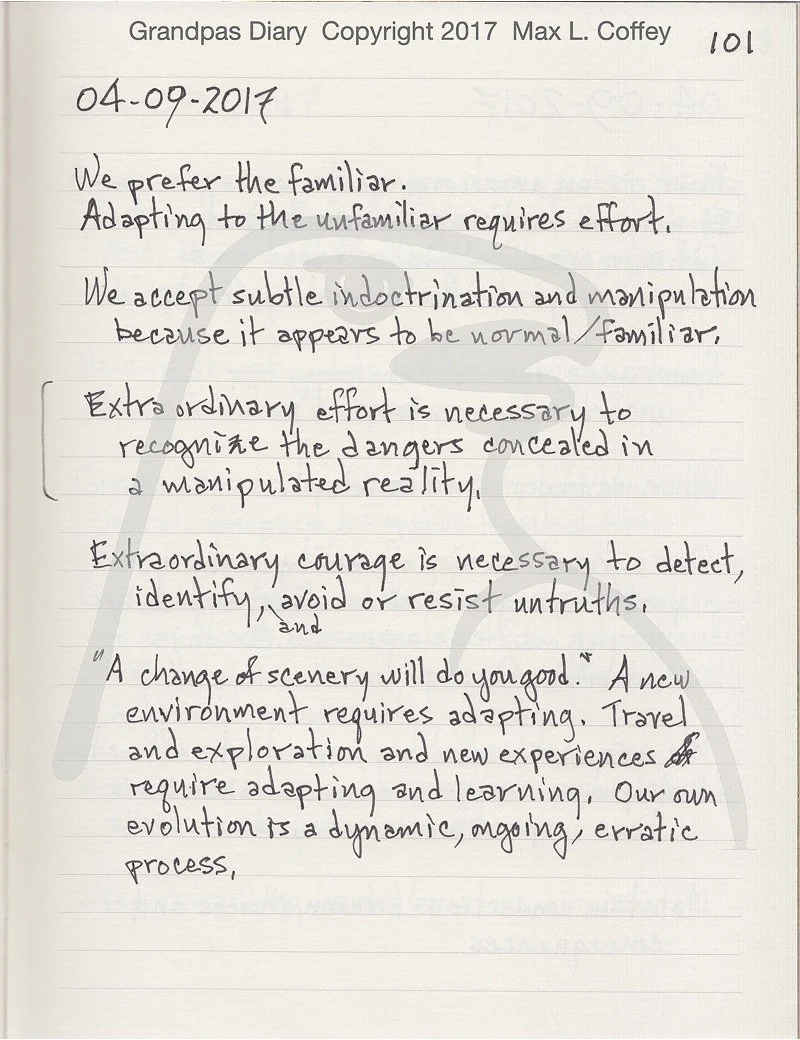 Grandpas Diary Copyright 2017 Max L. Coffey
101
04-09-2017
We prefer the familiar.
Adapting to the unfamiliar requires effort.
We accept subtle indoctrination and manipulation
because it appears to be normal/familiar.
Extra ordinary effort is necessary to
recognize the dangers concealed in
a manipulated reality.
Extraordinary courage is necessary to detect,
identify, avoid or resist untruths.
and
"A change of scenery will do you good." A new
environment requires adapting. Travel
and exploration and new experiences
require adapting and learning. Our own
evolution is a dynamic, ongoing, erratic
process.